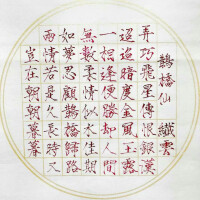 鵲橋仙 纖雲
弄巧飛星傳恨銀漢
迢迢暗度金風玉露
一相逢便勝卻人間
無數柔情似水佳期
如夢忍顧鵲橋歸路
兩情若是久長時又
豈在朝朝暮暮